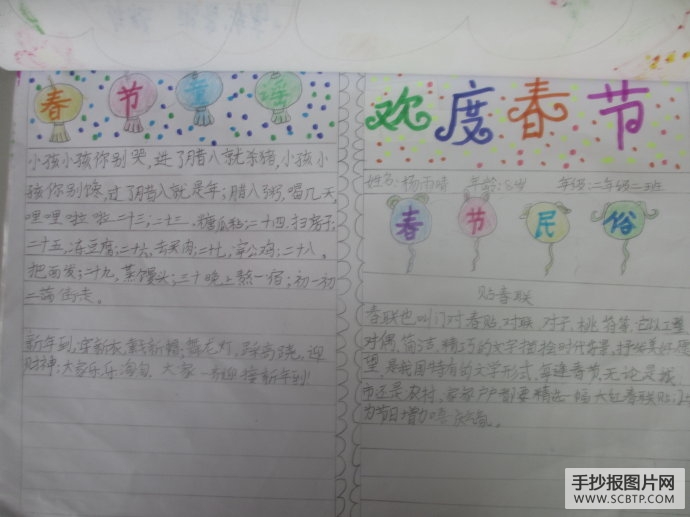 春节童谣
小孩小孩你别哭,进了腊八就杀猪,小孩小
孩你别馋,过了腊八就是年;腊八粥,喝几天,
哩哩啦啦二十三;二十三,糖瓜粘;二十四,扫房子;
二十五,冻豆腐;二十六,去买肉;二十七,宰公鸡;二十八,
把面发;二十九,蒸馒头;三十晚上熬一宿;初一初
二满街走。
新年到,穿新衣,戴新帽;舞龙灯,踩高跷,迎
财神;大家乐乐淘淘,大家一齐迎接新年到!
欢度春节
姓名:杨雨晴 年龄:8岁 年级:二年级二班
春节民俗
贴春联
春联也叫门对、春贴、对联、对子、桃符等,它以工整
对偶、简洁、精巧的文字描绘时代背景、抒发美好愿
望,是我国特有的文学形式,每逢春节,无论是城
市还是农村,家家户户都要精选一幅大红春联贴门上
为节日增加喜庆气氛。
手抄报图片网
WWW.SCBTP.COM